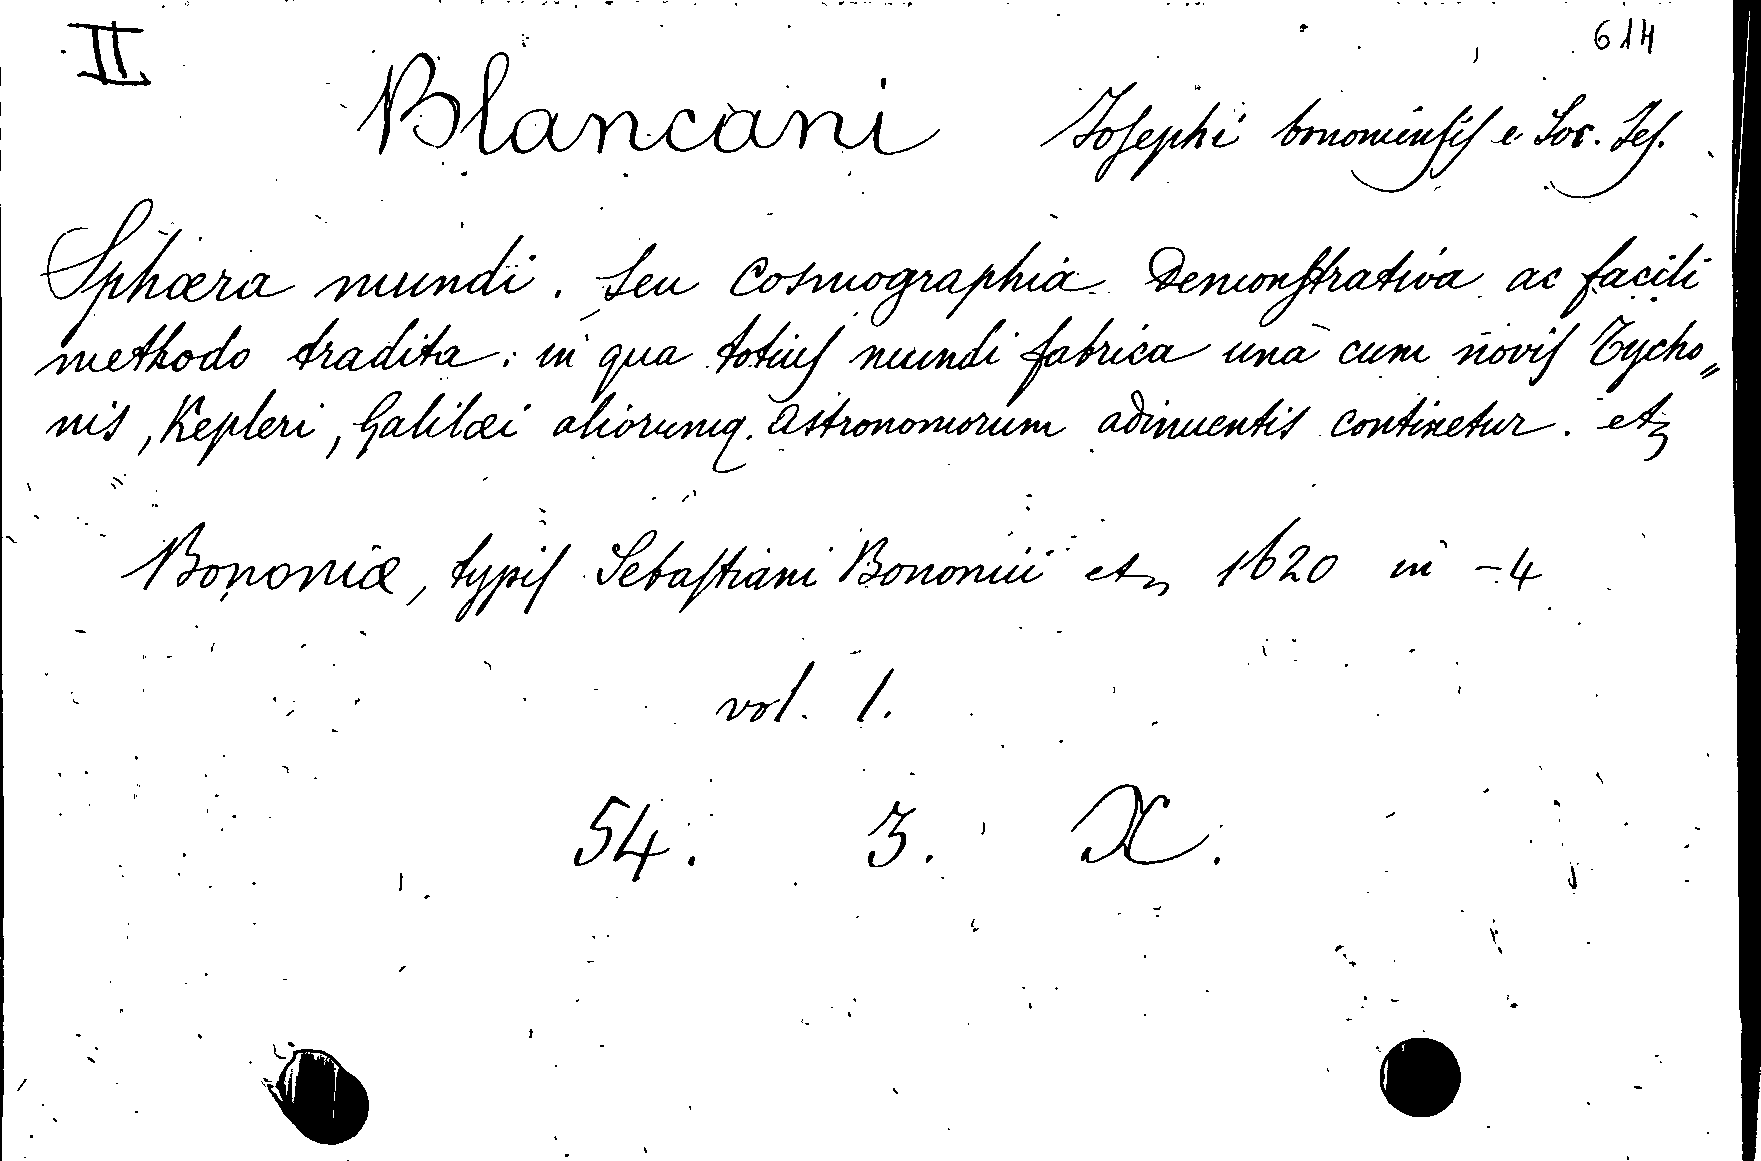 II
614
Blancani Josephi bononiensis e Soc. Jes.
Sphæra mundi. seu Cosmographia Demonstrativa ac facili
methodo tradita: in qua totius mundi fabrica unà cum novis Tycho„
nis, Kepleri, Galilæi aliorumq. astronomorum adinuentis continetur. etz
Bononiæ, typis Sebastiani Bonomii etz 1620 in -4
vol. 1.
54. 3. X.